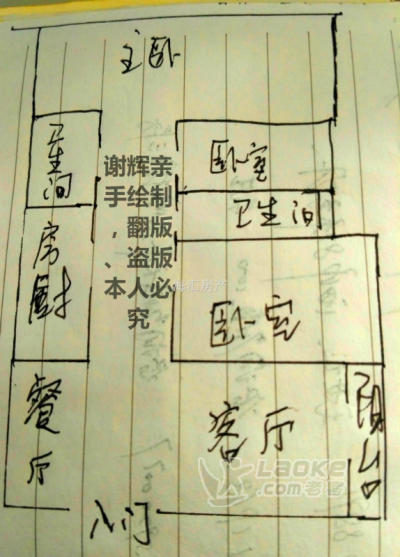 主卧
卫生间
卧室
谢辉亲
手绘制
，翻版
、盗版
本人必
究
卫生间
厨房
卧室
餐厅
客厅
阳台
入门
Laoke
.com老客